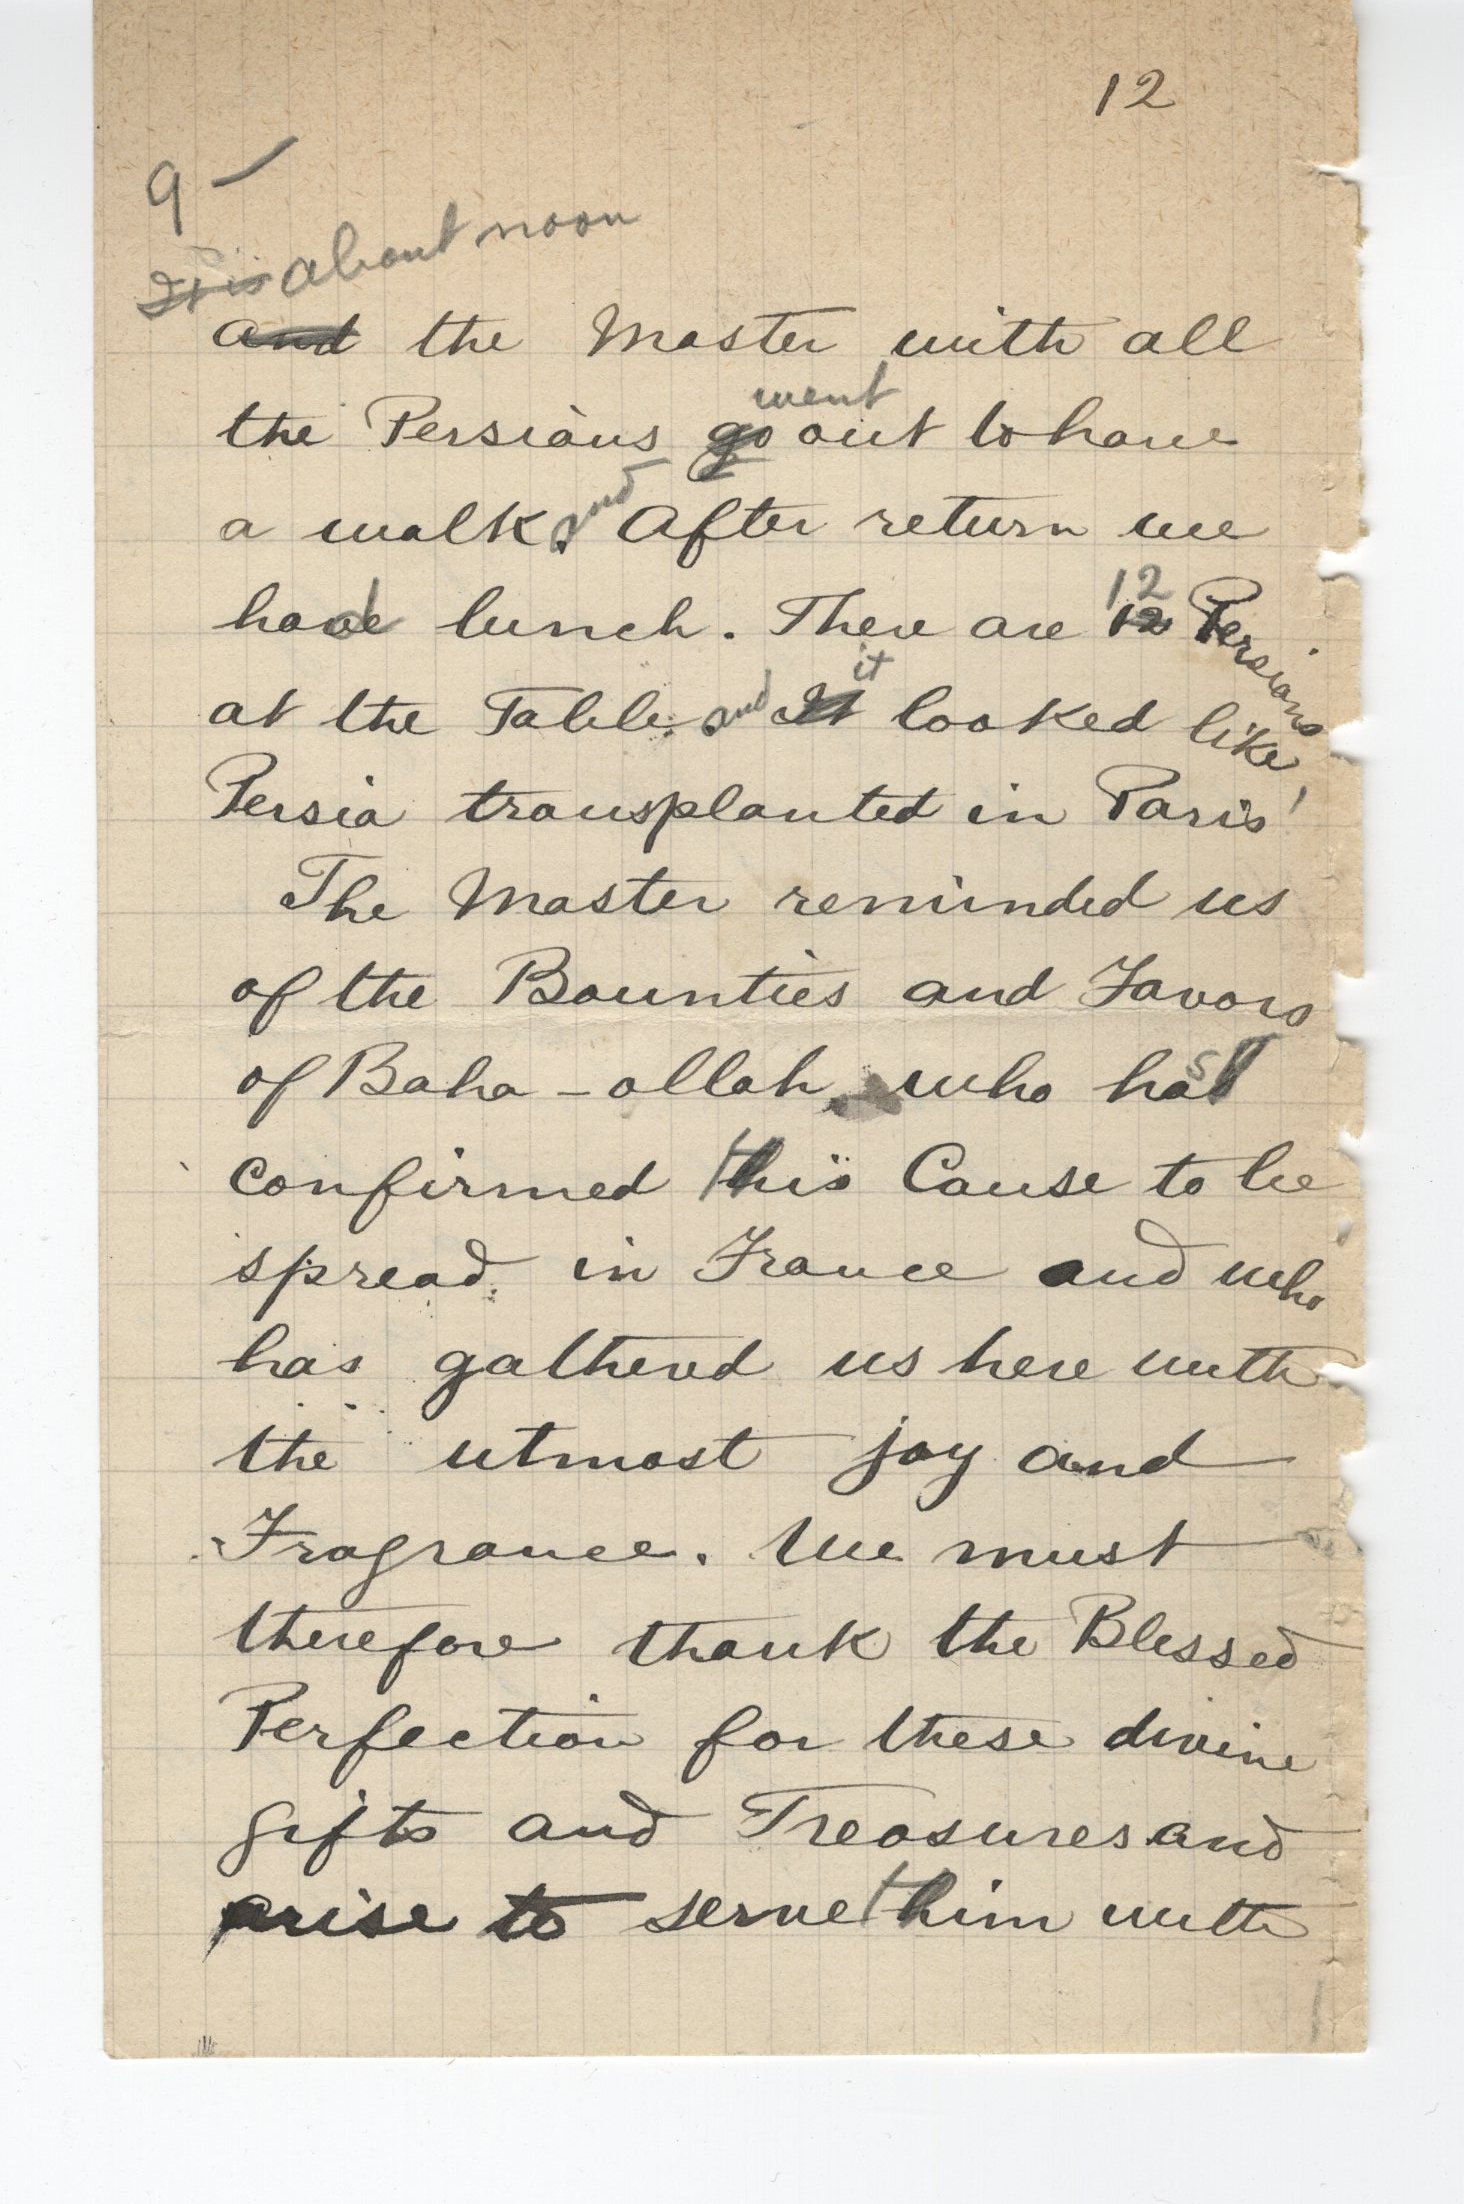 12
9 —
It is about noon
and the Master with all
went
the Persians go out to have
a walk. and After return we
had lunch. There are 12 12 Persians
at the Table. and It it looked like
Persia transplanted in Paris!
The Master reminded us
of the Bounties and Favors
of Baha-ollah, who has
confirmed this Cause to be
spread in France and who
has gathered us here with
the utmost joy and
Fragrance. We must
therefore thank the Blessed
Perfection for these divine
gifts and Treasures and
arise to serve him with